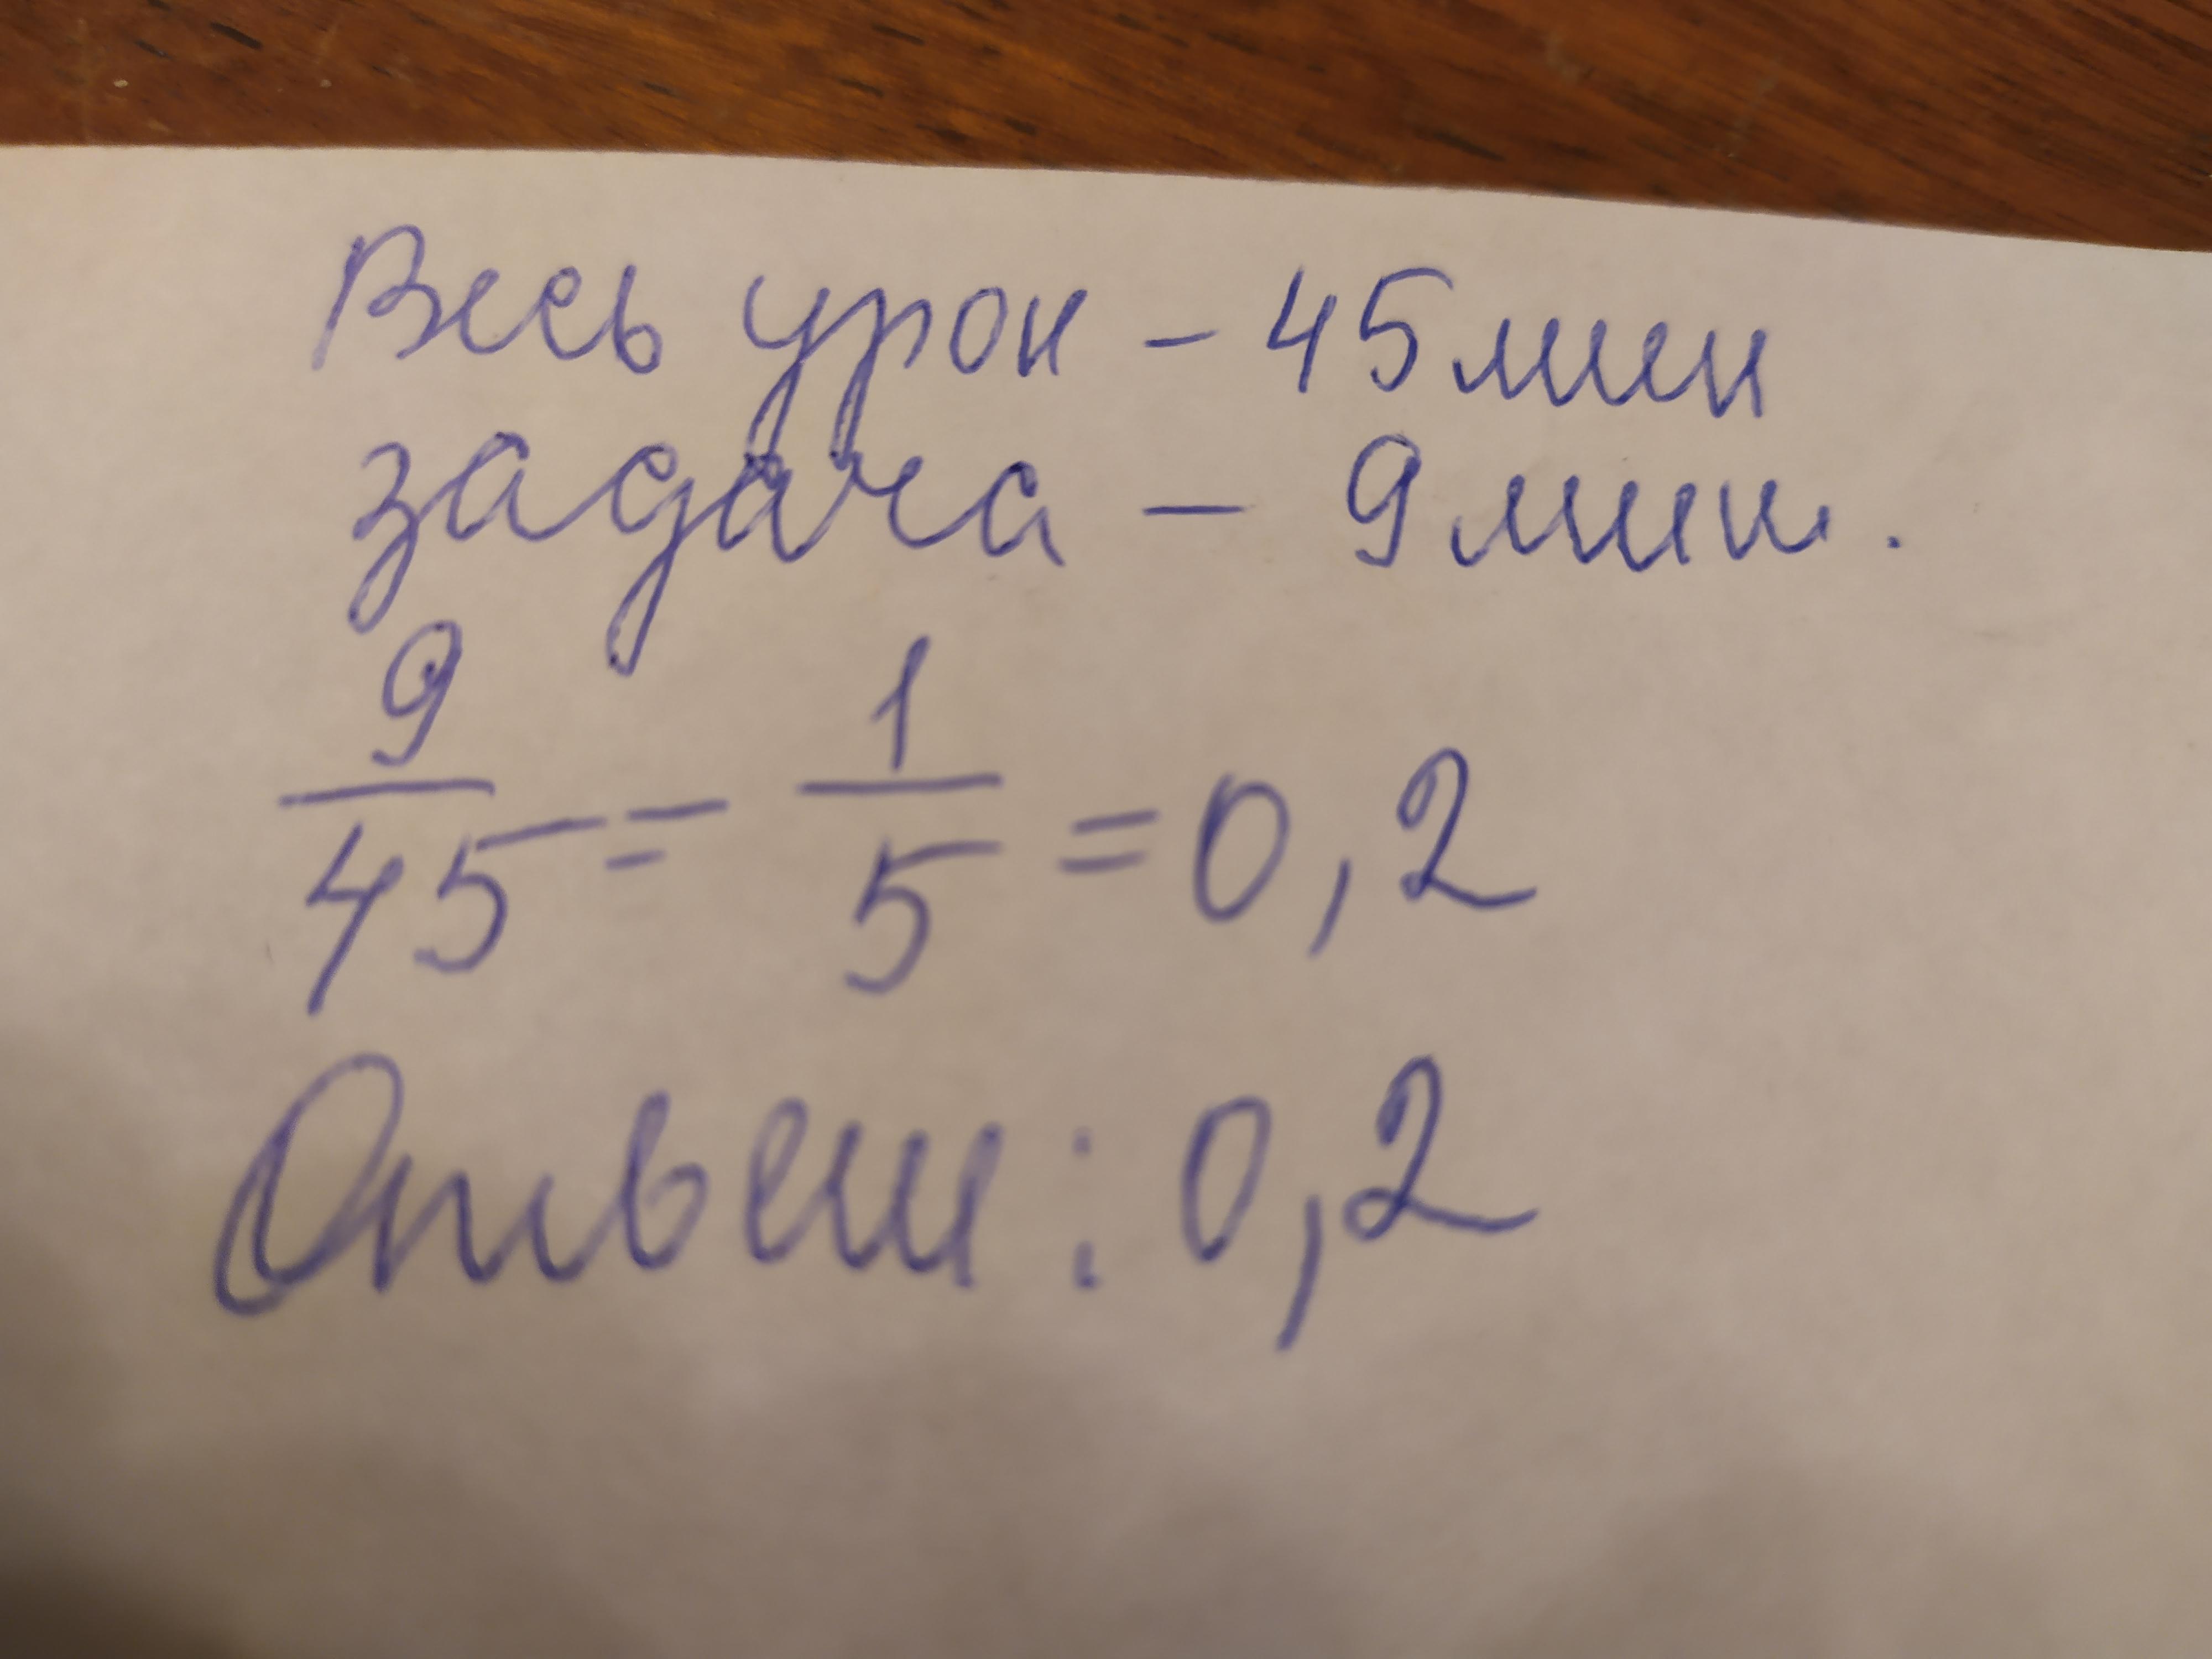 Весь урок - 45 мин
задача - 9 мин.
9/45 = 1/5 = 0,2
Ответ: 0,2